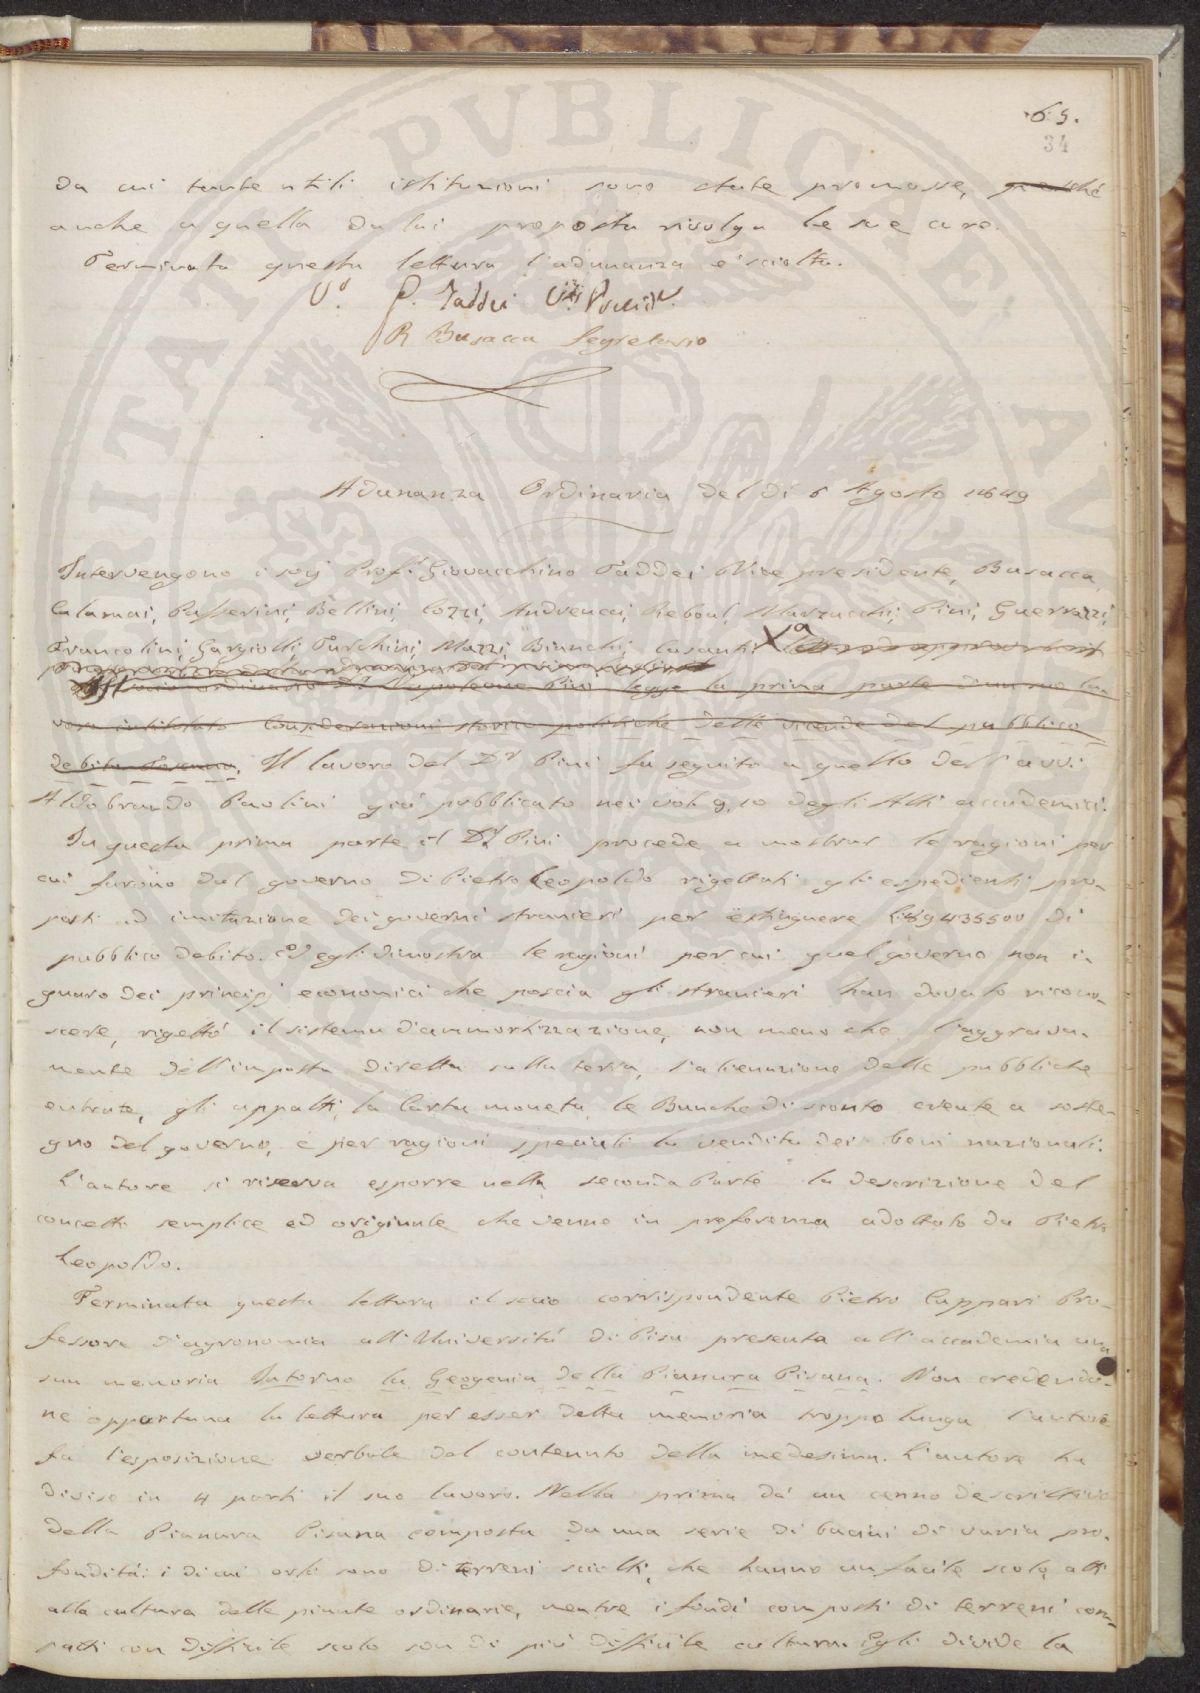 65.
34
da cui tante utili istituzioni sono state promosse, perché
anche a quella da lui proposta rivolga le sue cure.
Terminata questa lettura l'adunanza è sciolta.
V.º G. Taddei V.
R Busacca Segretario
Adunanza Ordinaria del dì 5 Agosto 1849
Intervengono i socj Prof.r Giovacchino Taddei Vice presidente, Busacca,
Calamai, Passerini, Bellini, Cozzi, Andreucci, Reboul, Marzucchi, Pini, Guerrazzi,
Francolini, Gargiolli, Turchini, Mazzi, Bianchi, Casanti
Il socio ordinario D.r Napoleone Pini legge la prima parte d'un suo la-
voro intitolato Considerazioni storico politiche delle vicende del pubblico
debito Toscano. Il lavoro del D.r Pini fa seguito a quello dell'avv.
Aldobrando Paolini già pubblicato nei vol. 9, 10 degli Atti accademici.
In questa prima parte il D.r Pini procede a mostrar le ragioni per
cui furono dal governo di Pietro Leopoldo rigettati gli espedienti pro-
posti ad imitazione dei governi stranieri per estinguere L. 89435500 di
pubblico debito. Ed egli dimostra le ragioni per cui quel governo non i-
gnaro dei principj economici che poscia gli stranieri han dovuto ricono-
scere, rigettò il sistema d'ammortizzazione, non meno che l'aggrava-
mento dell'imposta diretta sulla terra, l'alienazione delle pubbliche
entrate, gli appalti, la Carta moneta, le Banche di sconto erente a soste-
gno del governo, e per ragioni speciali la vendita dei beni nazionali.
L'autore si riserva esporre nella seconda Parte la descrizione del
concetto semplice ed originale che venne in preferenza adottato da Pietro
Leopoldo.
Terminata questa lettura il socio corrispondente Pietro Cuppari Pro-
fessore d'agronomia all'Università di Pisa presenta all'accademia una
sua memoria Intorno la Geogenia della Pianura Pisana. Non credendo-
ne opportuna la lettura per esser detta memoria troppo lunga l'autore
fa l'esposizione verbale del contenuto della medesima. L'autore ha
diviso in 4 parti il suo lavoro. Nella prima dà un cenno descrittivo
della Pianura Pisana composta da una serie di bacini di varia pro-
fondità: i di cui orli sono di terreni sciolti, che hanno un facile scolo, atti
alla cultura delle piante ordinarie, mentre i fondi composti di terreni com-
patti con difficile scolo son di più difficile cultura. Egli divide la